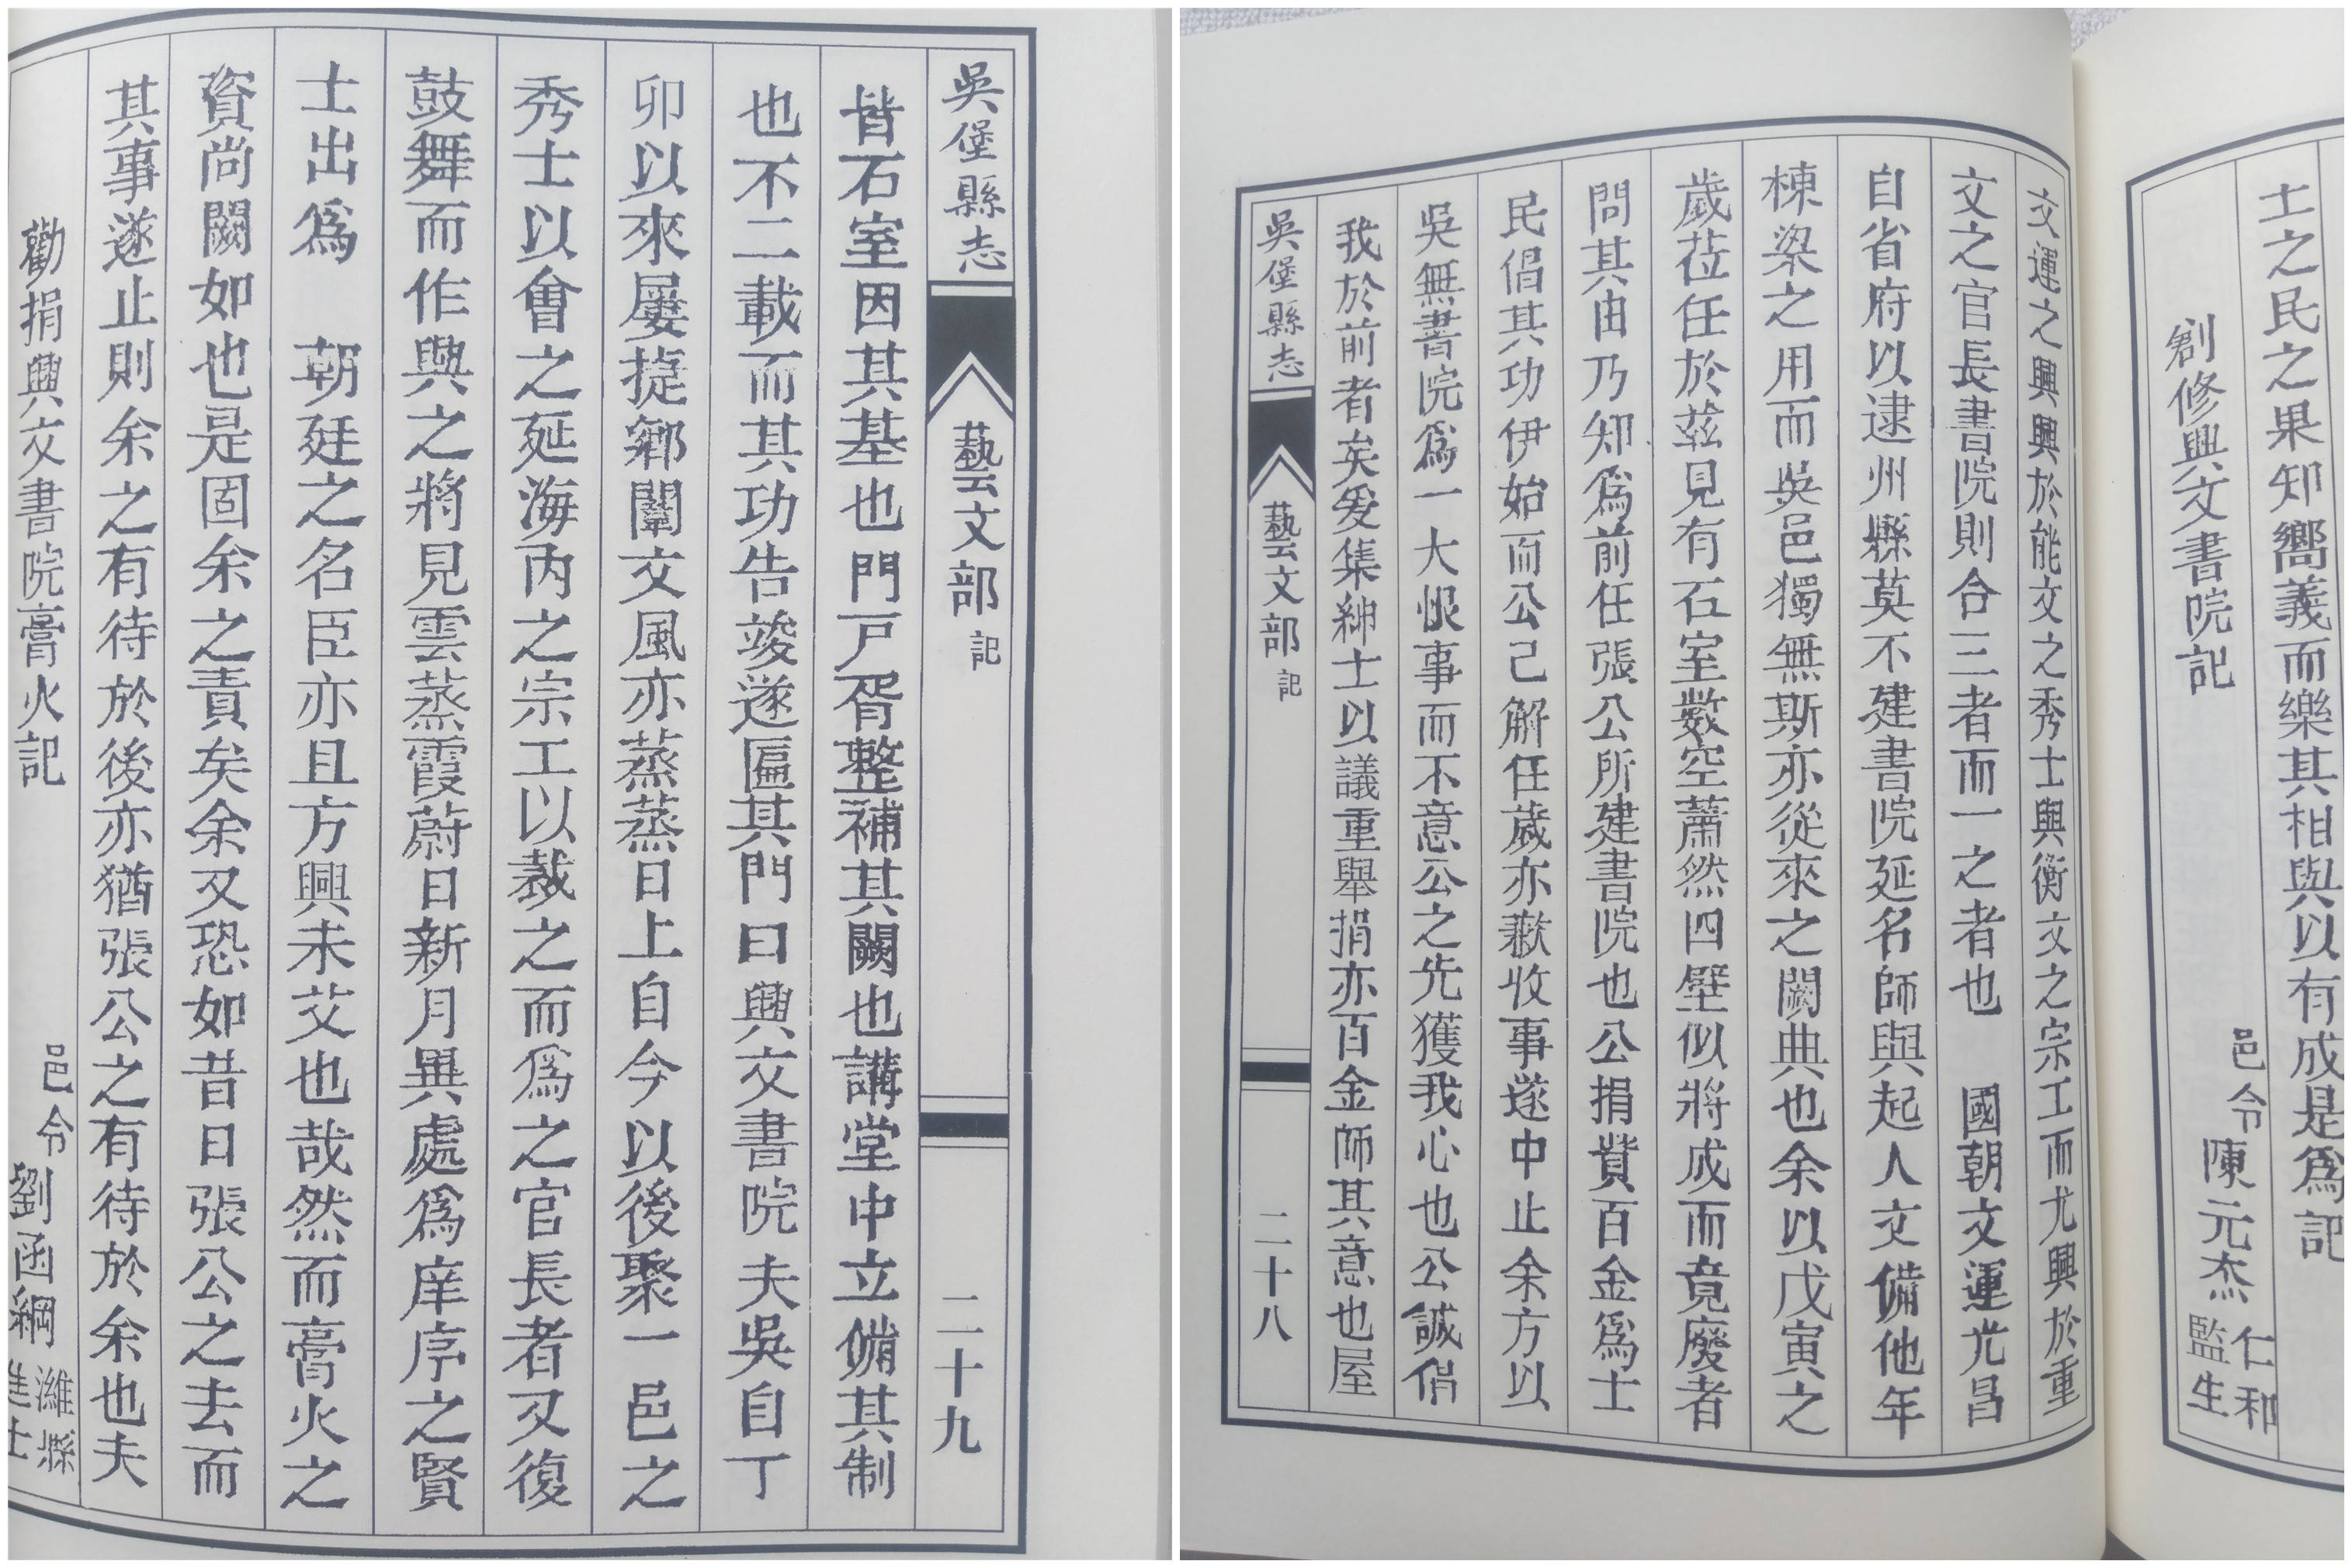 士之民之果知嚮義而樂其相與以有成是爲記
創修興文書院記
邑令陳元杰
仁和
監生
文運之興興於能文之秀士興衡文之宗工而尤興於重
文之官長書院則合三者而一之者也　國朝文運尤昌
自省府以逮州縣莫不建書院延名師與起人文備他年
棟梁之用而吳邑獨無斯亦從來之闕典也余以戊寅之
歲莅任於茲見有石室數空蕭然四壁似將成而竟廢者
問其由乃知爲前任張公所建書院也公捐貲百金爲士
民倡其功伊始而公已解任歲亦歉收事遂中止余方以
吳無書院爲一大恨事而不意公之先獲我心也公誠倡
我於前者矣爰集紳士以議重舉捐亦百金師其意也屋
吳堡縣志
藝文部
記
二十八
吳堡縣志
藝文部
記
二十九
皆石室因其基也門戸胥整補其闕也講堂中立備其制
也不二載而其功告竣遂匾其門曰興文書院夫吳自丁
卯以來屢捷鄉闈文風亦蒸蒸日上自今以後聚一邑之
秀士以會之延海內之宗工以裁之而爲之官長者又復
鼓舞而作興之將見雲蒸霞蔚日新月異處爲庠序之賢
士出爲　朝廷之名臣亦且方興未艾也哉然而膏火之
資尚闕如也是固余之責矣余又恐如昔日張公之去而
其事遂止則余之有待於後亦猶張公之有待於余也夫
勸捐興文書院膏火記
邑令劉函綱
濰縣
進士